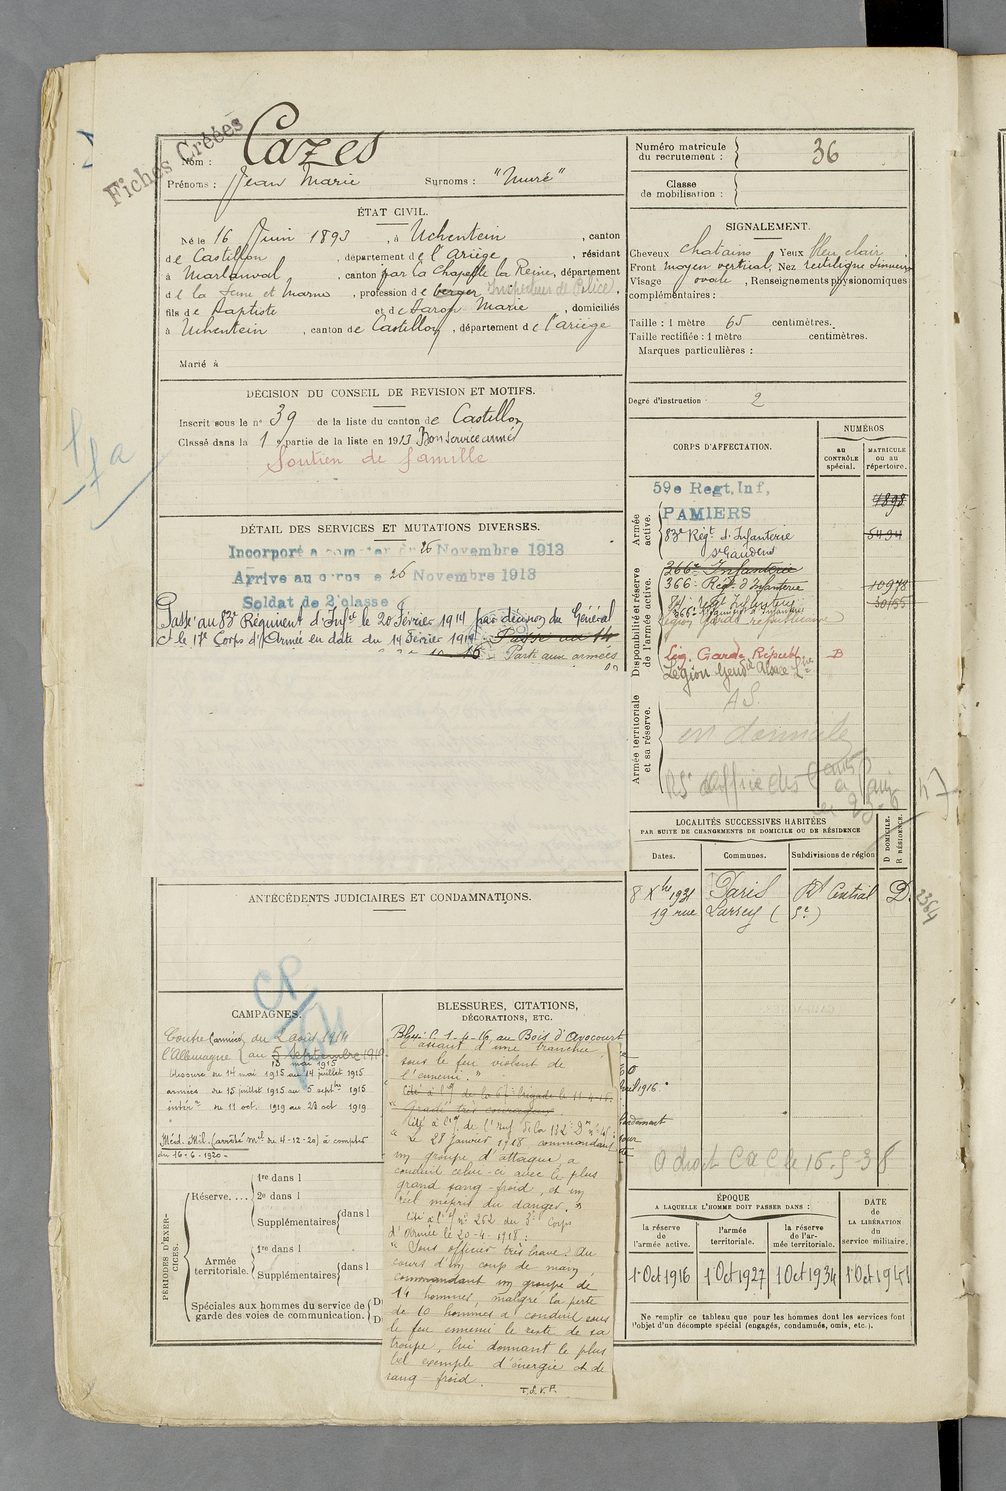 Fiches Créées
Nom : Cazes
Prénoms : Jean Marie Surnoms : "Muré"
ÉTAT CIVIL.
Né le 16 Juin 1893, à Uchentein, canton
de Castillon, département de l'Ariège, résidant
à Marlanval, canton par la Chapelle la Reine, département
de la Seine et Marne, profession de berger Inspecteur de Police,
fils de Baptiste et de Marie, domiciliés
à Uchentein, canton de Castillon, département de l'ariège
Marié à
DÉCISION DU CONSEIL DE REVISION ET MOTIFS.
Inscrit sous le n° 39 de la liste du canton de Castillon
Classé dans la 1 e partie de la liste en 1913 Bon service armé
Soutien de famille
DÉTAIL DES SERVICES ET MUTATIONS DIVERSES.
Incorporé a compter du 26 Novembre 1913
Arrive au corps le 26 Novembre 1913
Soldat de 2e classe
Passé au 83e Régiment d'Infie le 20 Février 1914 par décision du Général
Ct le 17e Corps d'Armée en date du 14 Février 1914. Passé au 14
Parti aux armées
ANTÉCÉDENTS JUDICIAIRES ET CONDAMNATIONS.
CAMPAGNES.
Contre (armées) du 2 août 1914
l'Allemagne au 5 septembre 1919
13 mai 1915
blessure du 14 mai 1915 au 14 juillet 1915
armées du 15 juillet 1915 au 5 septbre 1915
intérr du 11 oct. 1919 au 28 oct 1919
Méd. Mil. (arrêté mel du 4-12-20) à compter
du 16-6-1920-
PÉRIODES D'EXERCICES.
Réserve....
1re dans l
2e dans l
Supplémentaires dans l
Armée territoriale.
1re dans l
Supplémentaires dans l
Spéciales aux hommes du service de
garde des voies de communication.
BLESSURES, CITATIONS,
DÉCORATIONS, ETC.
Blessé le 1-4-16, au Bois d'Avocourt
l'assaut d'une tranchée
sous le feu violent de
l'ennemi."
Cité à l'o/ de la 67e brigade le 11-4-16.
" Gradé très courageux.
Cité à l'o/ de l'inf de la 132e Don
" Le 28 Janvier 1918 commandant
un groupe d'attaque, a
conduit celui-ci avec le plus
grand sang-froid, et un
réel mépris du danger."
Cité à l'o/ n° 262 du 3e Corps
d'Armée le 20-4-1918 :
" Sous officier très brave. Au
cours d'un coup de main,
commandant un groupe de
14 hommes, malgré la perte
de 10 hommes a conduit sous
le feu ennemi le reste de sa
troupe, lui donnant le plus
bel exemple d'énergie et de
sang-froid.
T.S.V.P.
Numéro matricule
du recrutement : 36
Classe
de mobilisation :
SIGNALEMENT.
Cheveux chatains Yeux bleu clair,
Front moyen vertical, Nez rectiligne
Visage ovale, Renseignements physionomiques
complémentaires :
Taille : 1 mètre 65 centimètres.
Taille rectifiée : 1 mètre centimètres.
Marques particulières :
Degré d'instruction 2
CORPS D'AFFECTATION.
NUMÉROS
au CONTRÔLE spécial.
MATRICULE ou au répertoire.
Armée active.
59e Regt, Inf, 4898
PAMIERS
83e Régt d'Infanterie 5494
St Gaudens
Disponibilité et réserve de l'armée active.
366e Infanterie
366e Régt d'Infanterie 10978
366e Régiment d'Infanterie
Légion garde républicaine
Lég. Garde Républ. B
Légion Gendie Alsace Lne
Armée territoriale et sa réserve.
A.S.
en domicile
LOCALITÉS SUCCESSIVES HABITÉES
PAR SUITE DE CHANGEMENTS DE DOMICILE OU DE RÉSIDENCE
Dates. Communes. Subdivisions de région D DOMICILE. R RÉSIDENCE.
8 Xbre 1921 Paris Rt Central D.
19 rue Larrey (5e)
2364
a droit CAC le 16-9-38
ÉPOQUE
A LAQUELLE L'HOMME DOIT PASSER DANS :
la réserve de l'armée active.
l'armée territoriale.
la réserve de l'armée territoriale.
DATE
DE LA LIBÉRATION
du service militaire.
1 Oct 1916 1 Oct 1927 1 Oct 1934 1 Oct 1941
Ne remplir ce tableau que pour les hommes dont les services font
l'objet d'un décompte spécial (engagés, condamnés, omis, etc.).